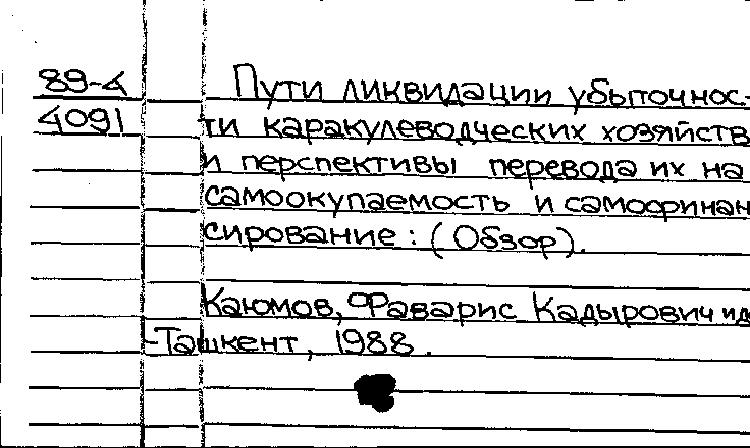 89-4 Пути ликвидации убыточнос-
4091 ти каракулеводческих хозяйств
и перспективы перевода их на
самоокупаемость и самофинан
сирование: (Обзор).
Каюмов, Фаварис Кадырович и др
-Ташкент, 1988.